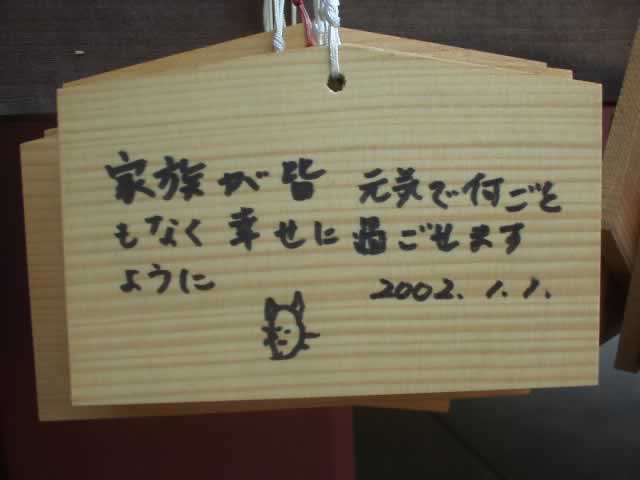 家族が皆 元気で何ごと
もなく幸せに過ごせます
ように 2002.1.1.